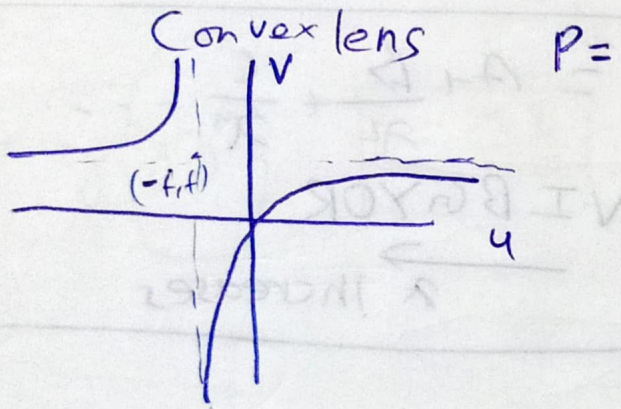 Convex lens
P=
V
(-f,f)
u